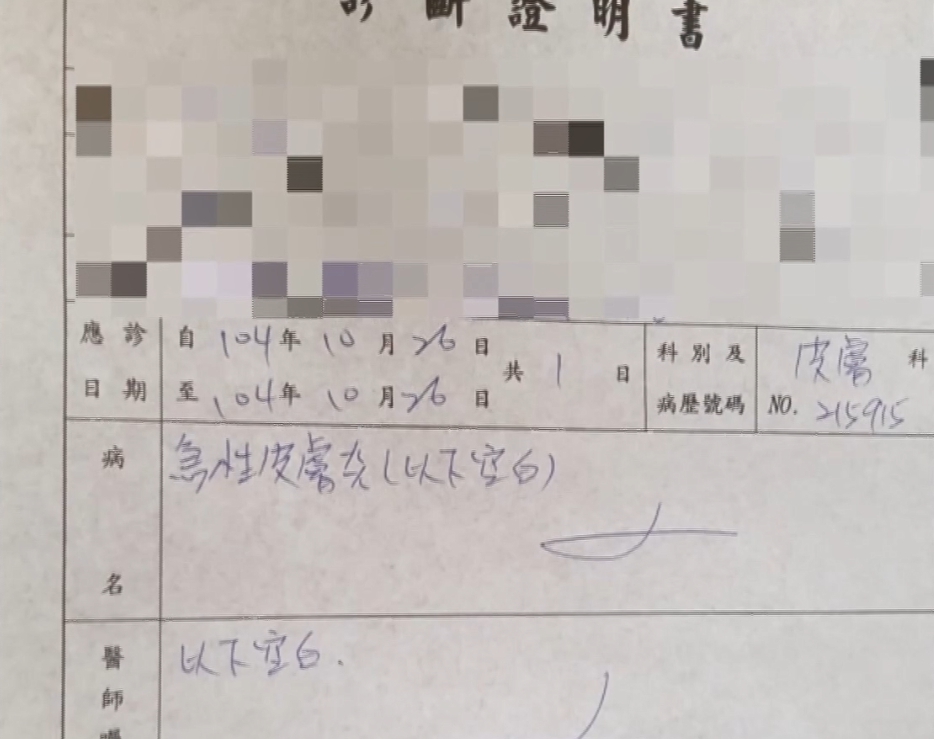 診斷證明書
應診 自 104 年 10 月 26 日
日期 至 104 年 10 月 26 日
共 1 日
科別及 皮膚 科
病歷號碼 NO. 215915
病名 急性皮膚炎(以下空白)
醫師囑 以下空白.